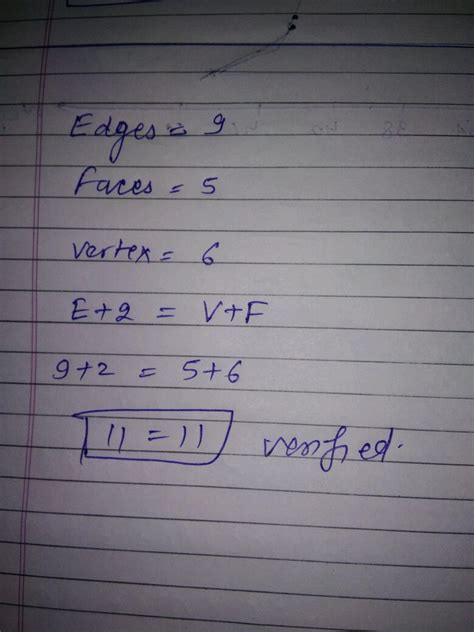 Edges = 9
faces = 5
vertex = 6
E+2 = V+F
9+2 = 5+6
11 = 11 verified.